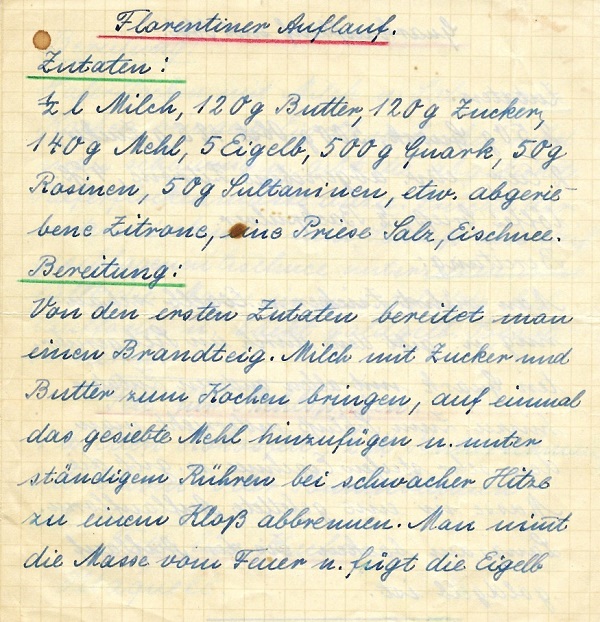 Florentiner Auflauf.
Zutaten:
½ l Milch, 120 g Butter, 120 g Zucker,
140 g Mehl, 5 Eigelb, 500 g Quark, 50 g
Rosinen, 50 g Sultaninen, etw. abgerie
bene Zitrone, eine Priese Salz, Eischnee.
Bereitung:
Von den ersten Zutaten bereitet man
einen Brandteig. Milch mit Zucker und
Butter zum Kochen bringen, auf einmal
das gesiebte Mehl hinzufügen u. unter
ständigem Rühren bei schwacher Hitze
zu einem Kloß abbrennen. Man nimt
die Masse vom Feuer u. fügt die Eigelb